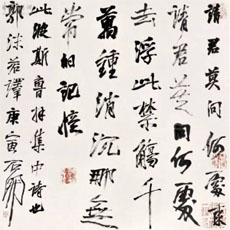 請君莫問何處來
請君莫問何處
去浮此禁觴千
萬鍾消沉那無
常的記憶
此波斯魯拜集中詩也
郭沫若譯庚寅